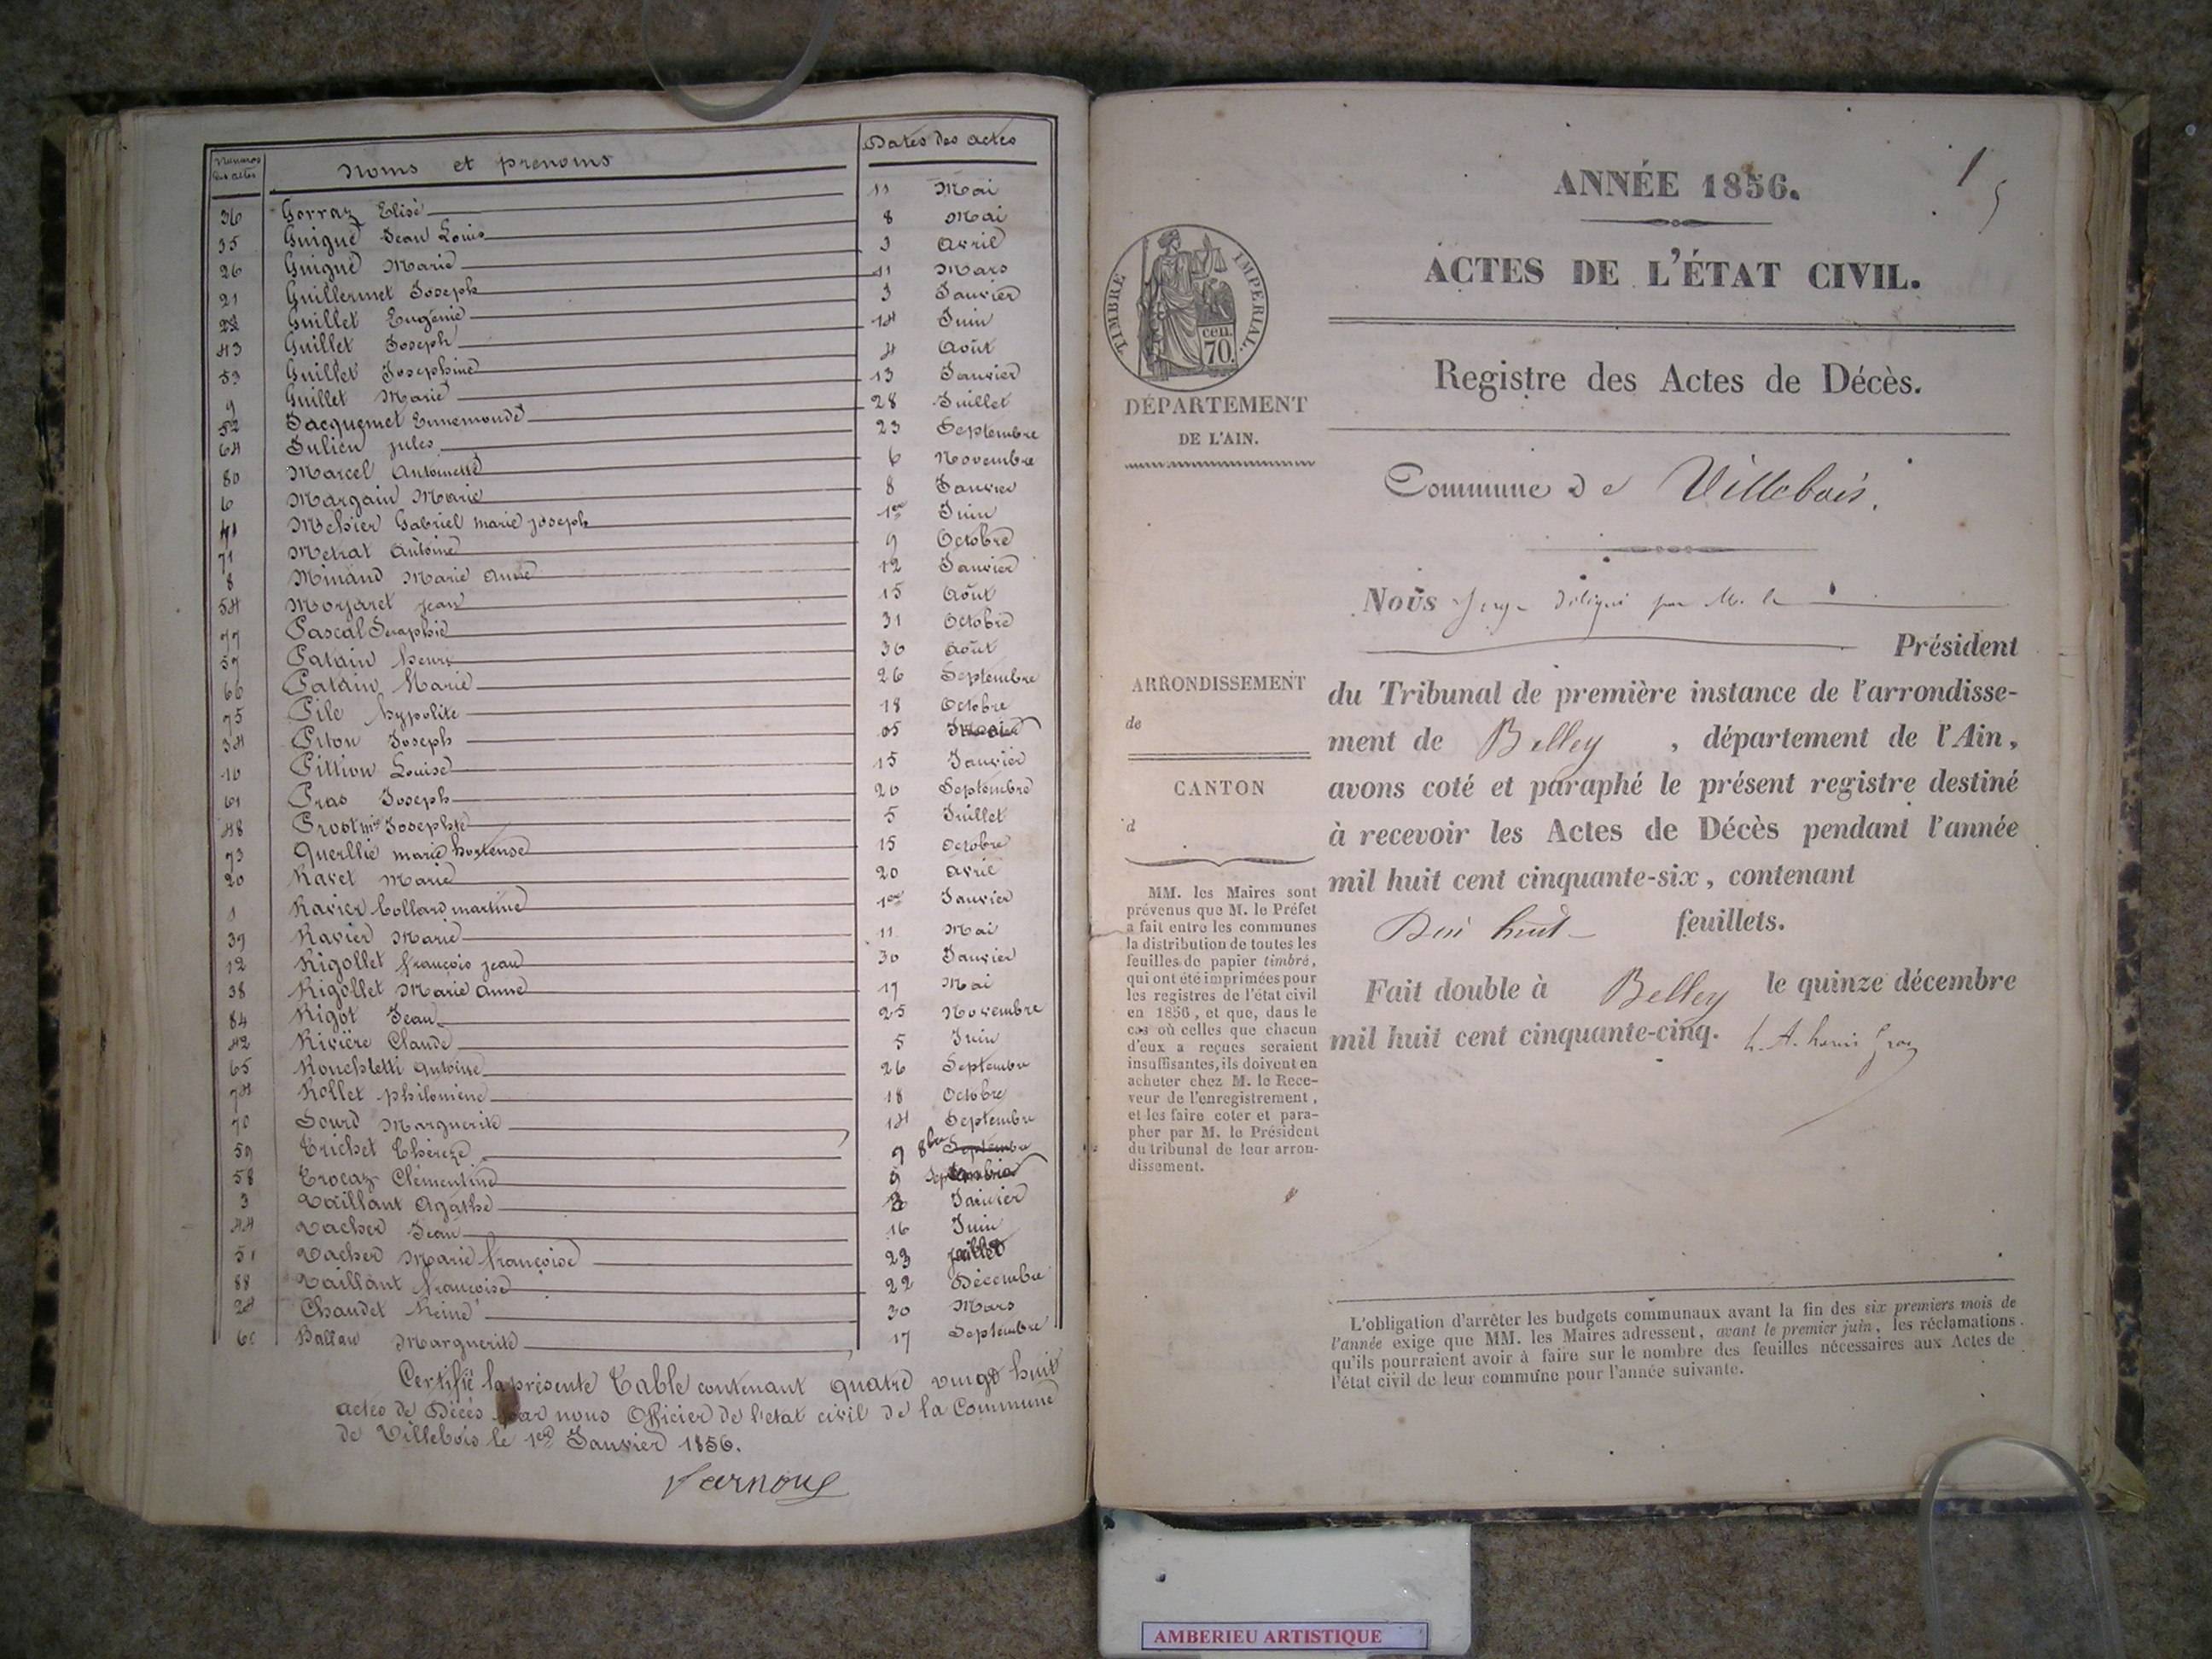 Numeros des actes Noms et prenoms Dates des actes
36 Gorraz Elisé 11 Mai
35 Guigue Jean Louis 8 Mai
26 Guigue Marie 3 Avril
21 Guillermet Joseph 11 Mars
Guillet Eugénie 3 Janvier
43 Guillet Joseph 14 Juin
53 Guillet Josephine 4 Août
9 Guillet Marie 13 Janvier
52 Jacquemet Ennemonde 28 Juillet
64 Julien jules 23 Septembre
80 Marcel Antoinette 6 Novembre
6 Margain Marie 8 Janvier
41 Gabriel marie joseph 1er Juin
71 Metrat Antoine 9 Octobre
8 Minand Marie Anne 12 Janvier
54 Morjaret jean 15 Août
77 Pascal Seraphie 31 Octobre
57 Patain henri 30 Août
66 Patain Marie 26 Septembre
75 Pile hypolite 18 Octobre
34 Piton Joseph 05
10 Pittion Louise 15 Janvier
61 Pras Joseph 20 Septembre
48 Prost mie Josephte 5 Juillet
73 Querllie marie hortense 15 Octobre
20 Ravet Marie 20 Avril
1 Ravier Collard martine 1er Janvier
39 Ravier Marie 11 Mai
12 Rigollet françois jean 30 Janvier
38 Rigollet Marie Anne 19 Mai
84 Rigot Jean 25 Novembre
42 Rivière Claude 5 Juin
65 Ronchletti Antoine 26 Septembre
74 Rollet philomène 18 Octobre
70 Sourd Marguerite 14 Septembre
59 Trichet Thérèze 9 8bre Septembre
58 Trocaz Clémentine 9
3 Vaillant Agathe Janvier
44 Vacher Jean 16 Juin
51 Vacher Marie françoise 23 juillet
88 Vaillant françoise 22 Décembre
Chaudet Reine 30 Mars
60 Ballan Marguerite 17 Septembre
Certifié la présente Table contenant quatre vingt huit
actes de Décès par nous Officier de l'etat civil de la Commune
de Villebois le 1er Janvier 1856.
Varnoux
1
5
ANNÉE 1856.
ACTES DE L'ÉTAT CIVIL.
TIMBRE IMPÉRIAL.
cen.
70.
Registre des Actes de Décès.
DÉPARTEMENT
DE L'AIN.
Commune de Villebois.
Nous Juge délégué par M. le
Président
ARRONDISSEMENT
de
CANTON
d
du Tribunal de première instance de l'arrondisse-
ment de Belley, département de l'Ain,
avons coté et paraphé le présent registre destiné
à recevoir les Actes de Décès pendant l'année
mil huit cent cinquante-six, contenant
Dix huit feuillets.
Fait double à Belley le quinze décembre
mil huit cent cinquante-cinq.
MM. les Maires sont
prévenus que M. le Préfet
a fait entre les communes
la distribution de toutes les
feuilles de papier timbré,
qui ont été imprimées pour
les registres de l'état civil
en 1856, et que, dans le
cas où celles que chacun
d'eux a reçues seraient
insuffisantes, ils doivent en
acheter chez M. le Rece-
veur de l'enregistrement,
et les faire coter et para-
pher par M. le Président
du tribunal de leur arron-
dissement.
L'obligation d'arrêter les budgets communaux avant la fin des six premiers mois de
l'année exige que MM. les Maires adressent, avant le premier juin, les réclamations
qu'ils pourraient avoir à faire sur le nombre des feuilles nécessaires aux Actes de
l'état civil de leur commune pour l'année suivante.
AMBERIEU ARTISTIQUE